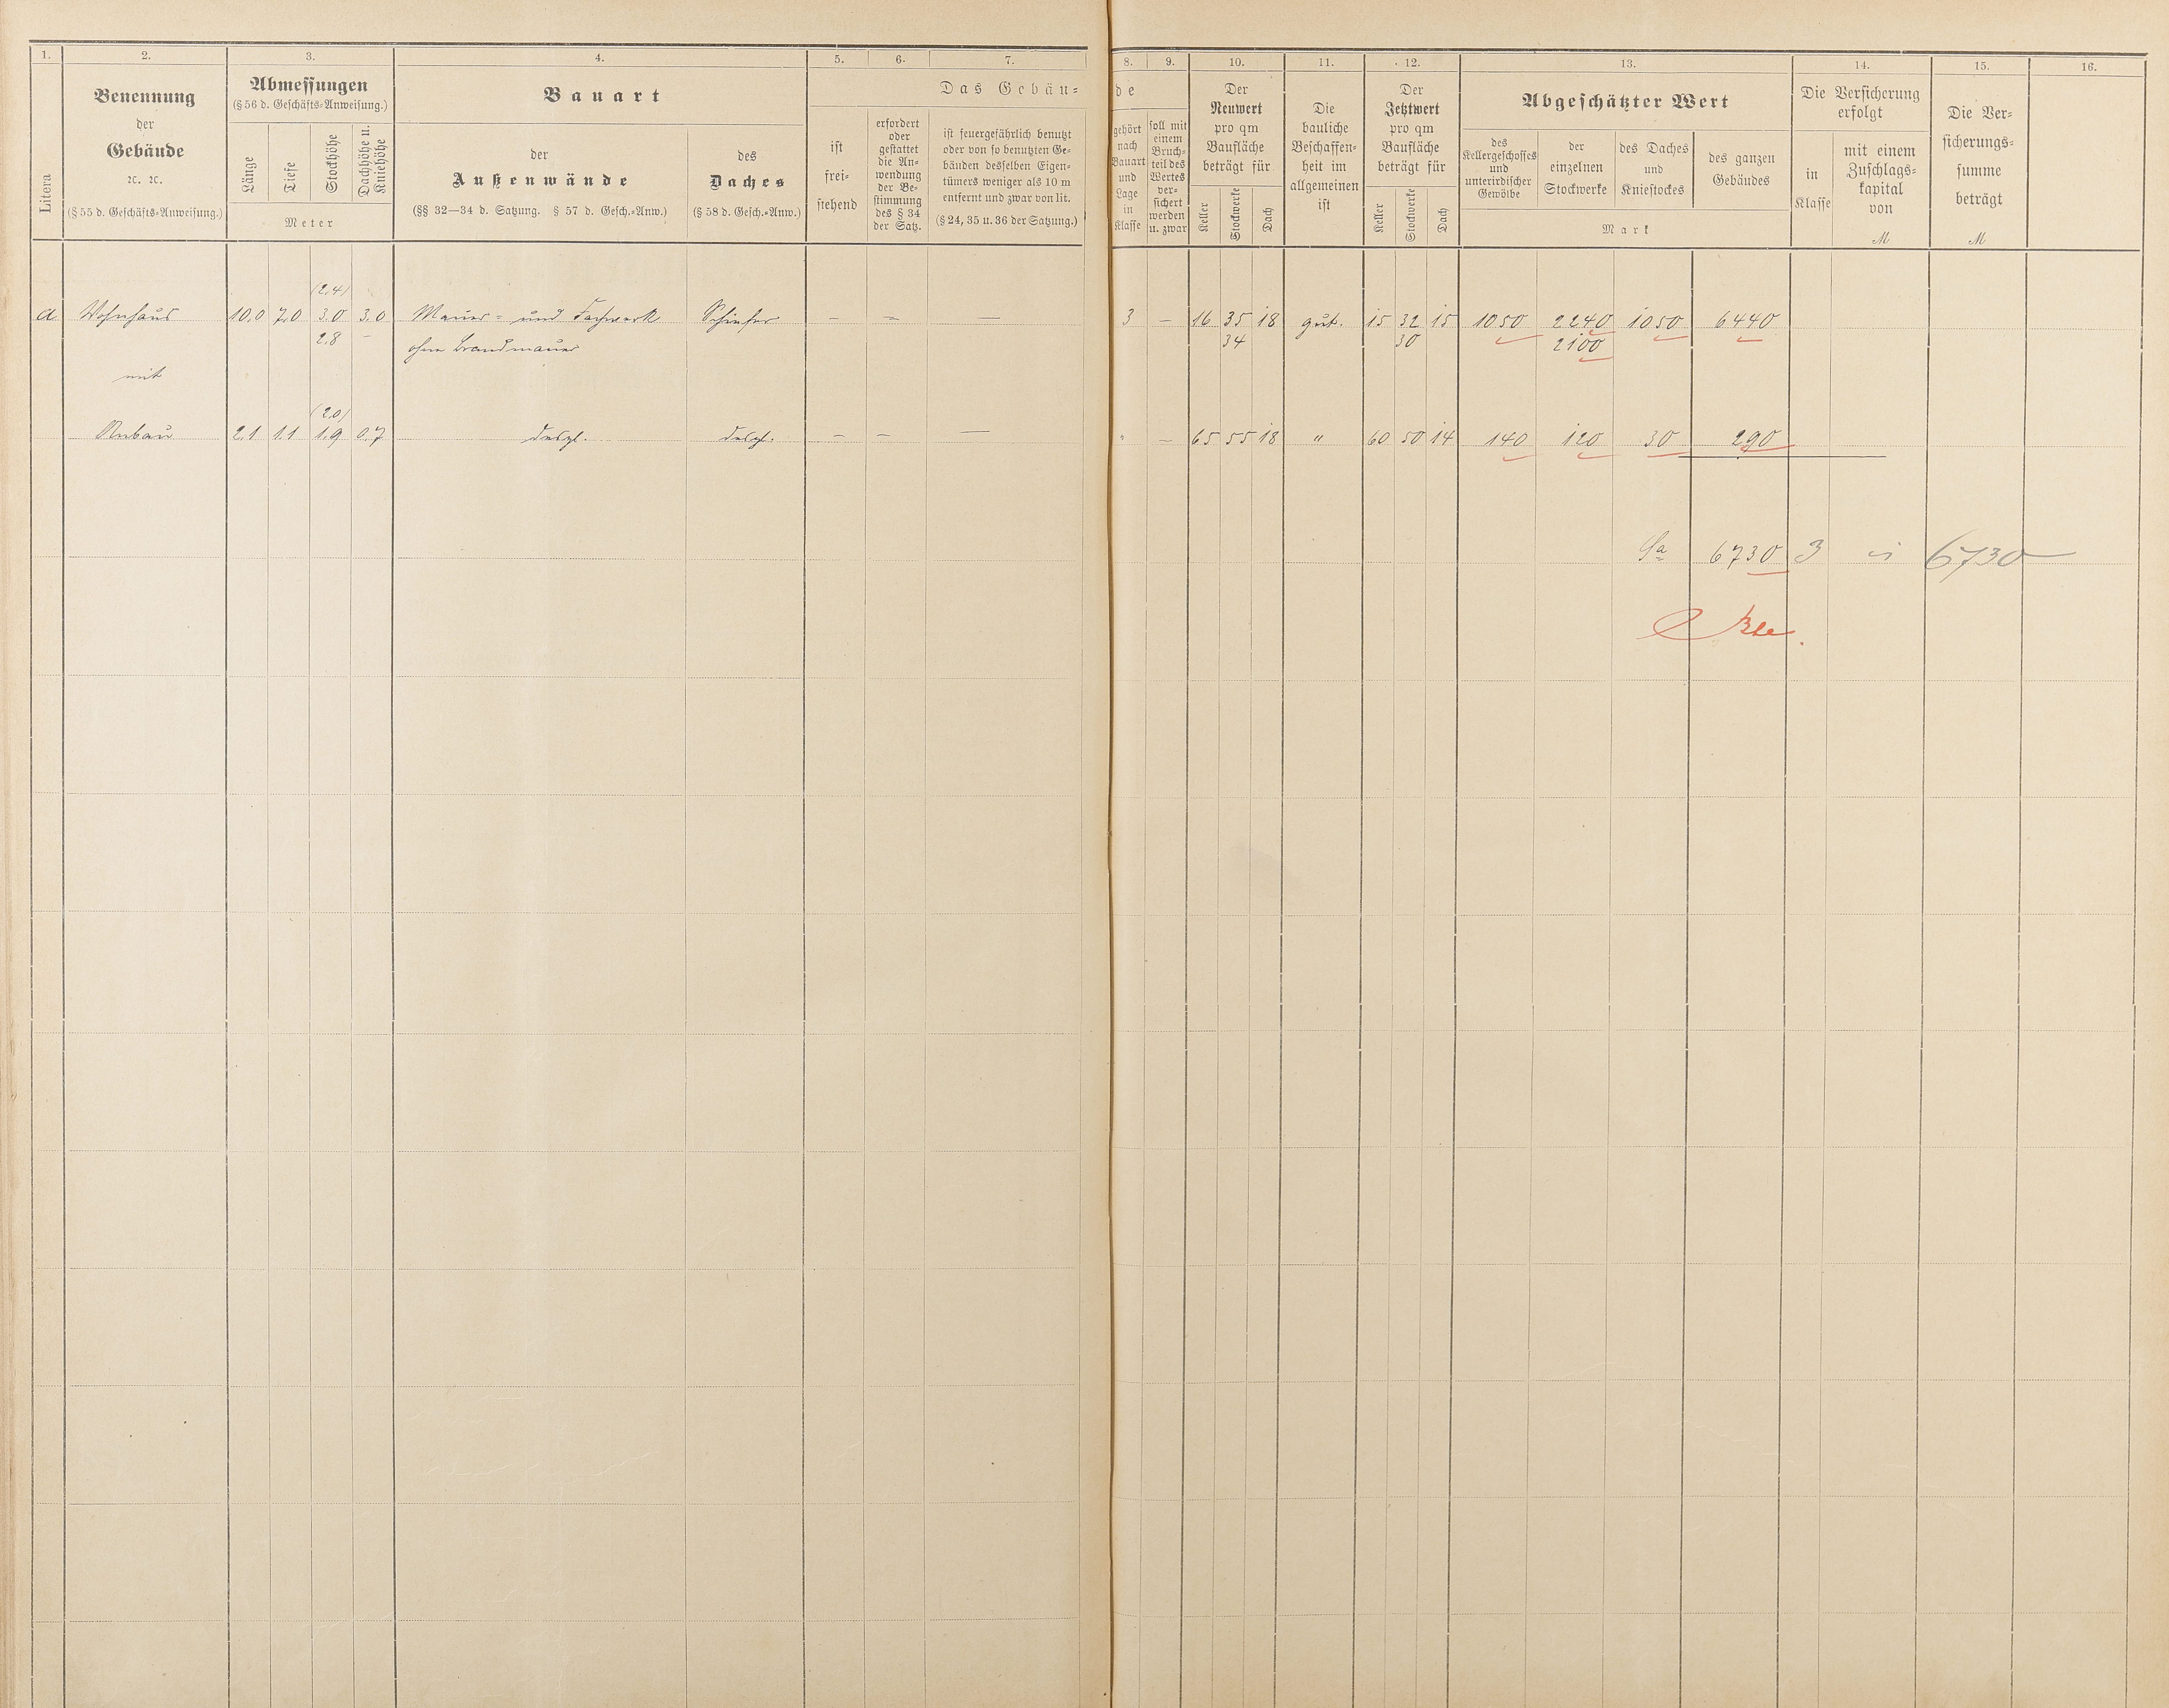 1. 2. 3. 4. 5. 6. 7. 8. 9. 10. 11. 12. 13. 14. 15. 16.
Litera
Benennung
der
Gebäude
ꝛc. ꝛc.
(§ 55 d. Geschäfts-Anweisung.)
Abmessungen
(§ 56 d. Geschäfts-Anweisung.)
Länge
Tiefe
Stockhöhe
Dachhöhe u.
Kniehöhe
Meter
Bauart
der
Außenwände
(§§ 32—34 d. Satzung. § 57 d. Gesch.-Anw.)
des
Daches
(§ 58 d. Gesch.-Anw.)
Das Gebäu-
ist
frei-
stehend
erfordert
oder
gestattet
die An-
wendung
der Be-
stimmung
des § 34
der Satz.
ist feuergefährlich benutzt
oder von so benutzten Ge-
bäuden desselben Eigen-
tümers weniger als 10 m
entfernt und zwar von lit.
(§ 24, 35 u. 36 der Satzung.)
de
gehört
nach
Bauart
und
Lage
in
Klasse
soll mit
einem
Bruch-
teil des
Wertes
ver-
sichert
werden
u. zwar
Der
Neuwert
pro qm
Baufläche
beträgt für
Keller
Stockwerke
Dach
Die
bauliche
Beschaffen-
heit im
allgemeinen
ist
Der
Jetztwert
pro qm
Baufläche
beträgt für
Keller
Stockwerke
Dach
Abgeschätzter Wert
des
Kellergeschosses
und
unterirdischer
Gewölbe
der
einzelnen
Stockwerke
des Daches
und
Kniestockes
des ganzen
Gebäudes
Mark
Die Versicherung
erfolgt
in
Klasse
mit einem
Zuschlags-
kapital
von
M
Die Ver-
sicherungs-
summe
beträgt
M
(2,4)
a Wohnhaus 10,0 7,0 3,0 3,0 Mauer- und Fachwerk Schiefer — — — 3 — 16 35 18 gut. 15 32 15 1050 2240 1050 6440
2,8 — ohne Brandmauer 34 30 2100
mit
(2,0)
Anbau 2,1 1,1 1,9 0,7 desgl. desgl. — — — " — 65 55 18 " 60 50 14 140 120 30 290
Sa 6730 3 6730